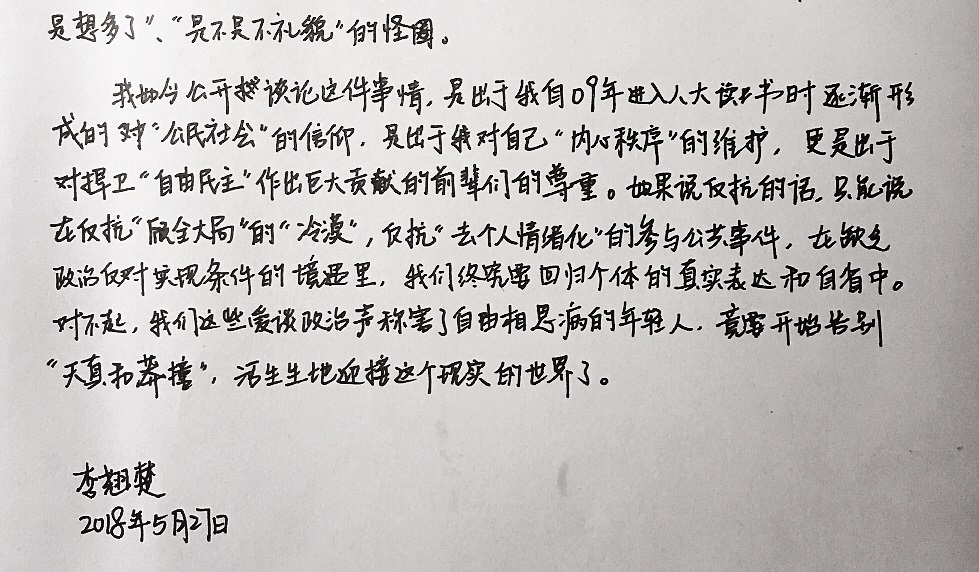 是想多了”、“是不是不礼貌”的怪圈。
我如今公开提谈论这件事情，是出于我自09年进入人大读书时逐渐形
成的对“公民社会”的信仰，是出于我对自己“内心秩序”的维护，更是出于
对捍卫“自由民主”作出巨大贡献的前辈们的尊重。如果说反抗的话，只能说
在反抗“顾全大局”的“冷漠”，反抗“去个人情绪化”的参与公共事件，在缺乏
政治反对实现条件的境遇里，我们终究要回归个体的真实表达和自省中。
对不起，我们这些爱谈政治声称害了自由相思病的年轻人，竟要开始告别
“天真和莽撞”，活生生地迎接这个现实的世界了。
李翘楚
2018年5月27日